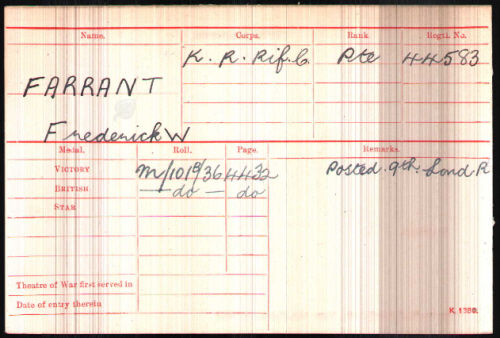 Name. Corps. Rank. Regtl. No.
K. R. Rif. C. Pte 44583
FARRANT
Frederick W
Medal. Roll. Page. Remarks.
VICTORY 4432 Posted. 9th. Lond R
BRITISH — do — do
STAR
Theatre of War first served in
Date of entry therein
K. 1380.